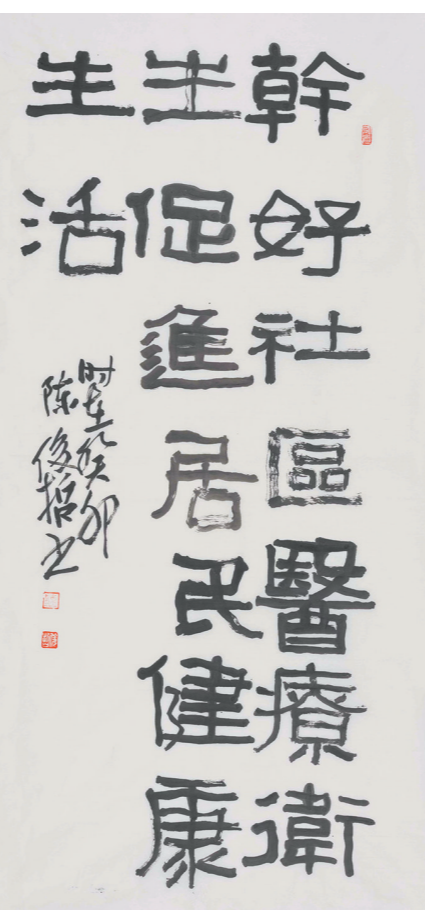 幹好社區醫療衛
生促進居民健康
生活
时在癸卯
陈俊哲书